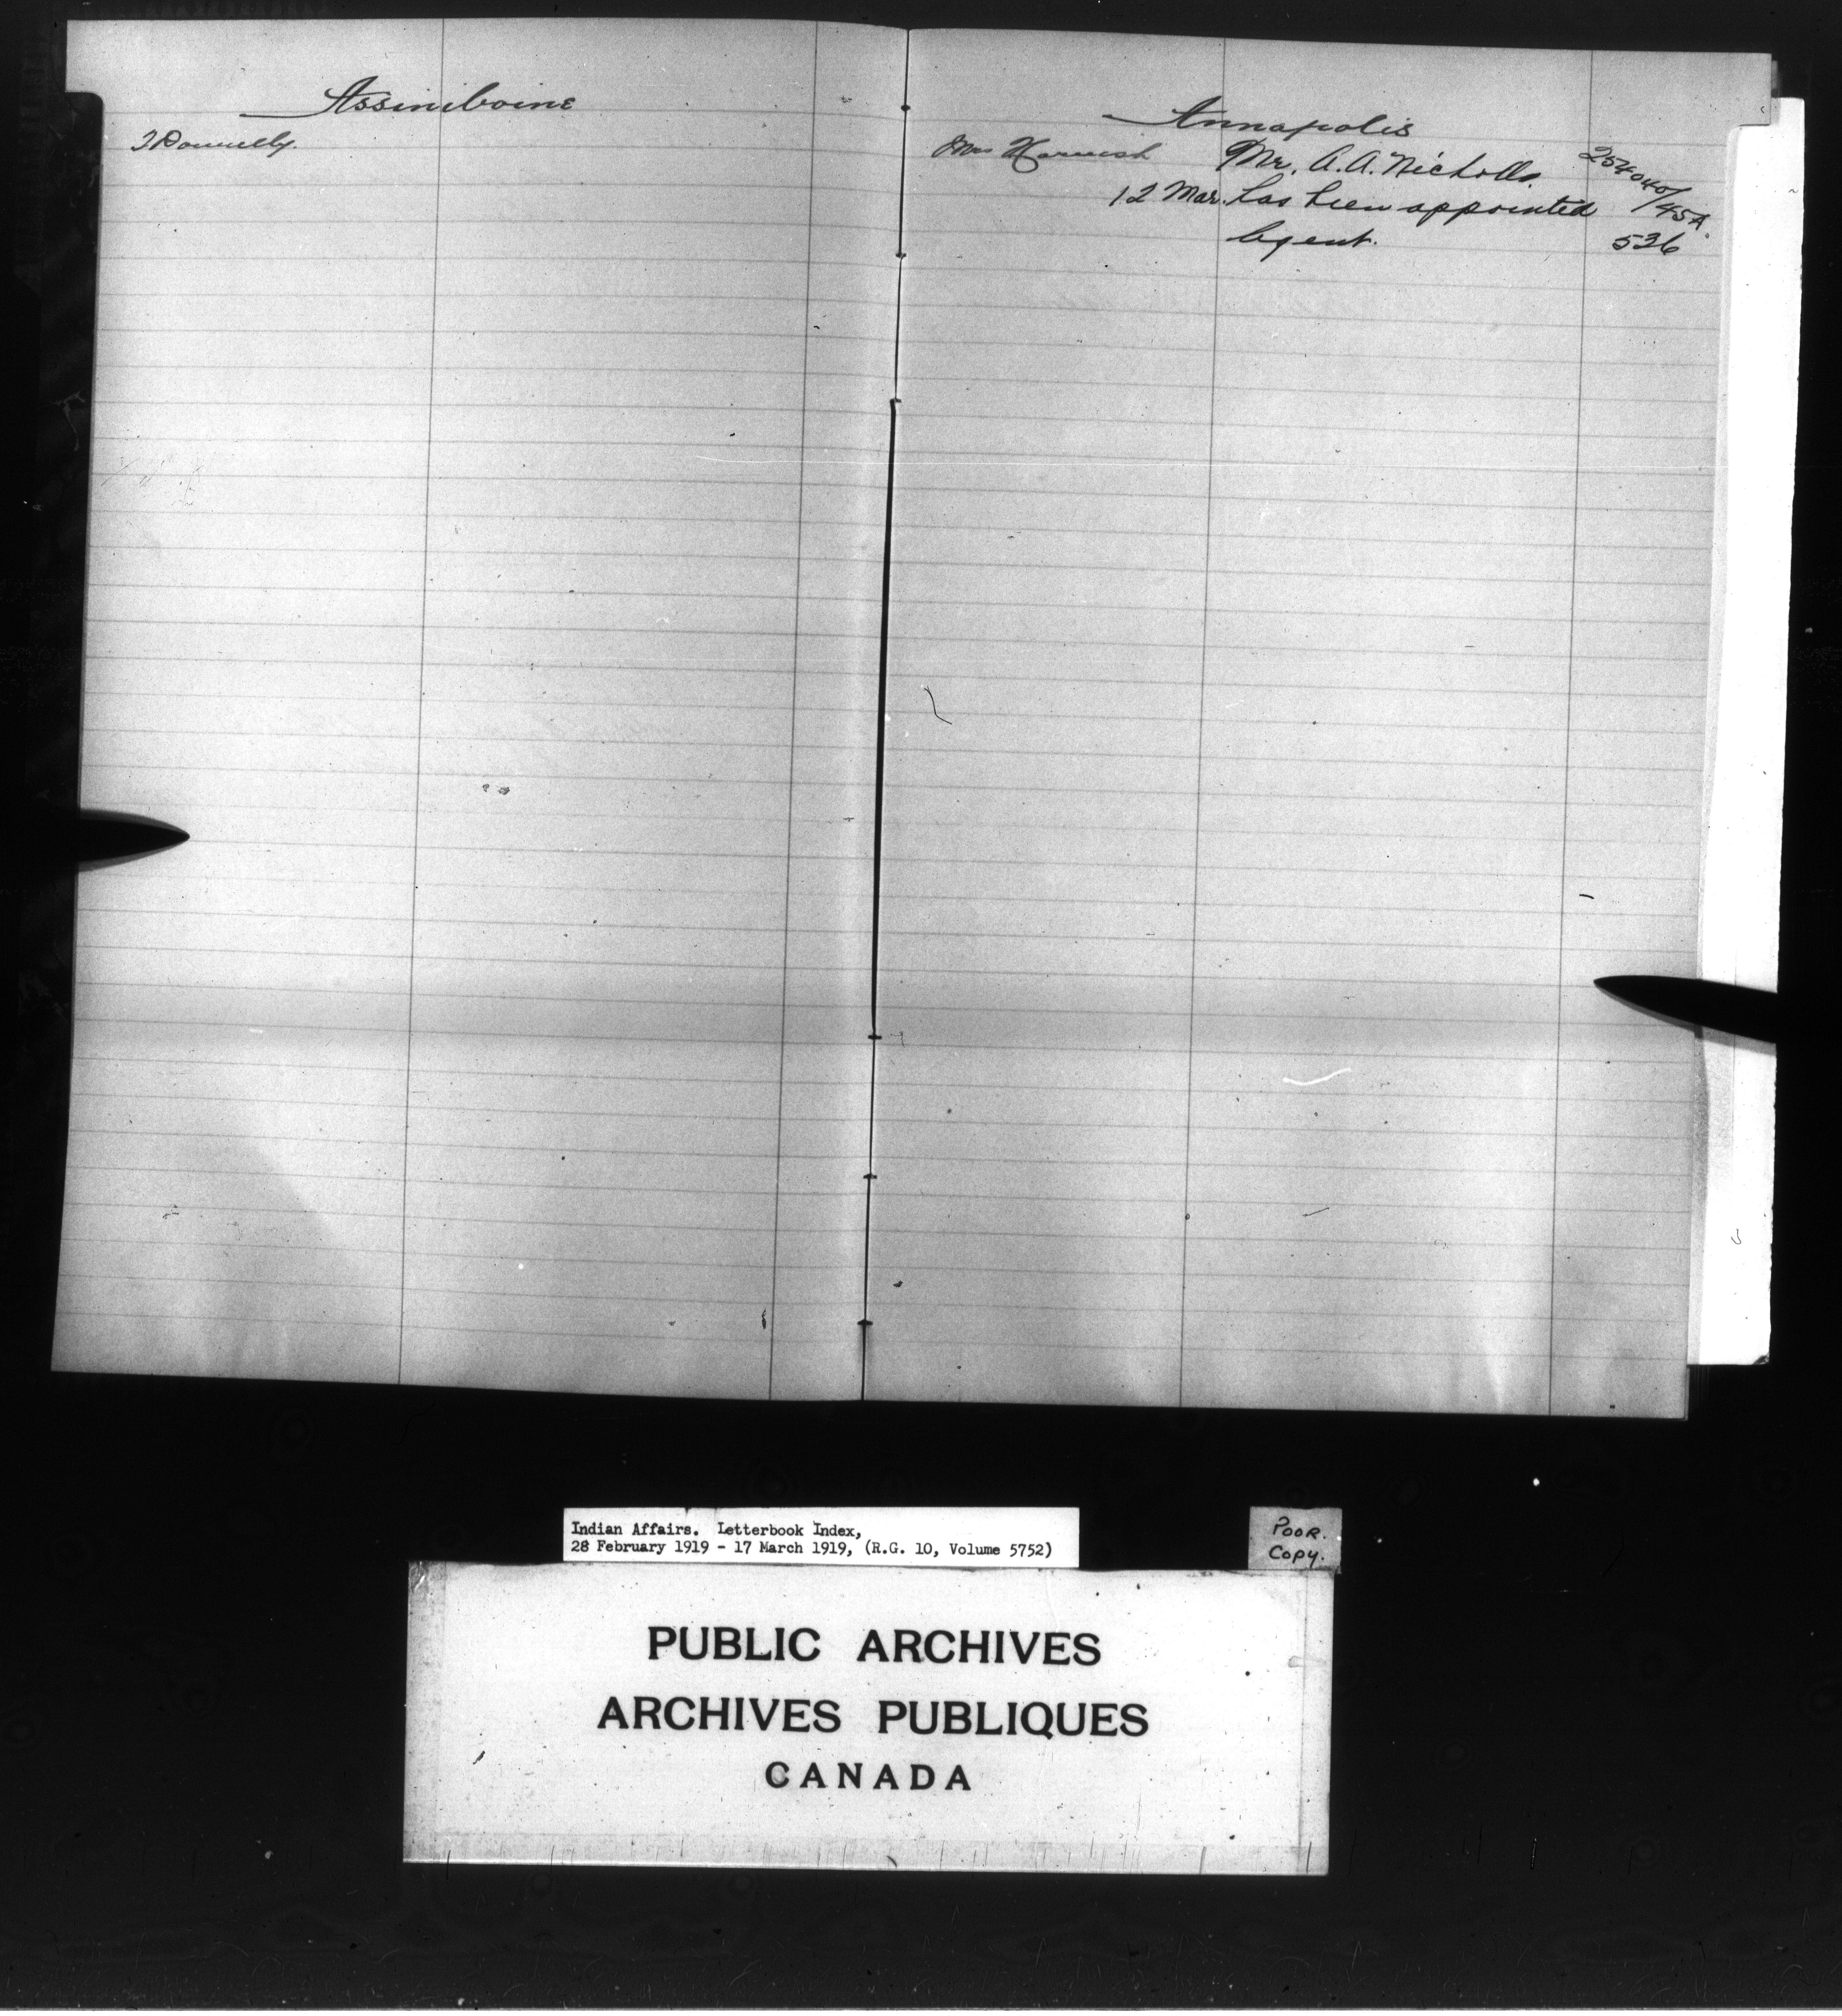 Assiniboine
J Donnelly.
Annapolis
Mrs Harnish Mr. A.A. Nicholls 254040/45A.
12 Mar. has been appointed
Agent. 526
Indian Affairs. Letterbook Index,
28 February 1919 - 17 March 1919, (R.G. 10, Volume 5752)
POOR.
Copy.
PUBLIC ARCHIVES
ARCHIVES PUBLIQUES
CANADA